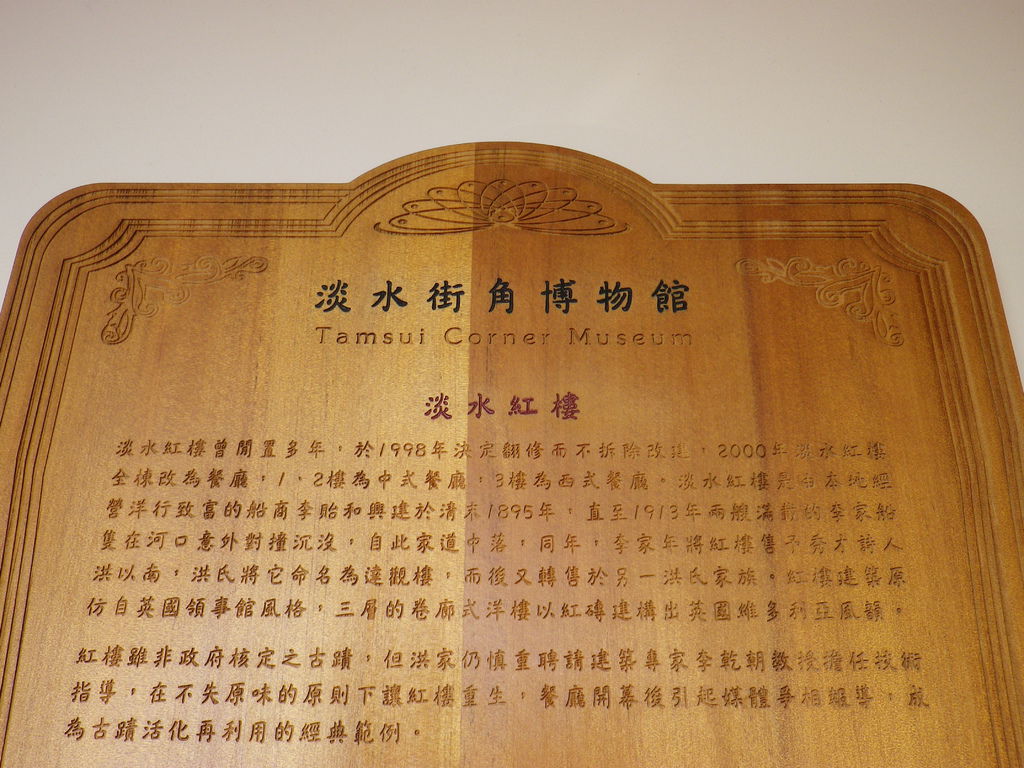 淡水街角博物館
Tamsui Corner Museum
淡水紅樓
淡水紅樓曾閒置多年，於1998年決定翻修而不拆除改建，2000年淡水紅樓
全棟改為餐廳，1、2樓為中式餐廳，3樓為西式餐廳。淡水紅樓是由本地經
營洋行致富的船商李貽和興建於清末1895年，直至1913年兩艘滿載的李家船
隻在河口意外對撞沉沒，自此家道中落，同年，李家年將紅樓售予秀才詩人
洪以南，洪氏將它命名為達觀樓，而後又轉售於另一洪氏家族。紅樓建築原
仿自英國領事館風格，三層的卷廊式洋樓以紅磚建構出英國維多利亞風韻。
紅樓雖非政府核定之古蹟，但洪家仍慎重聘請建築專家李乾朝教授擔任技術
指導，在不失原味的原則下讓紅樓重生，餐廳開幕後引起媒體爭相報導，成
為古蹟活化再利用的經典範例。